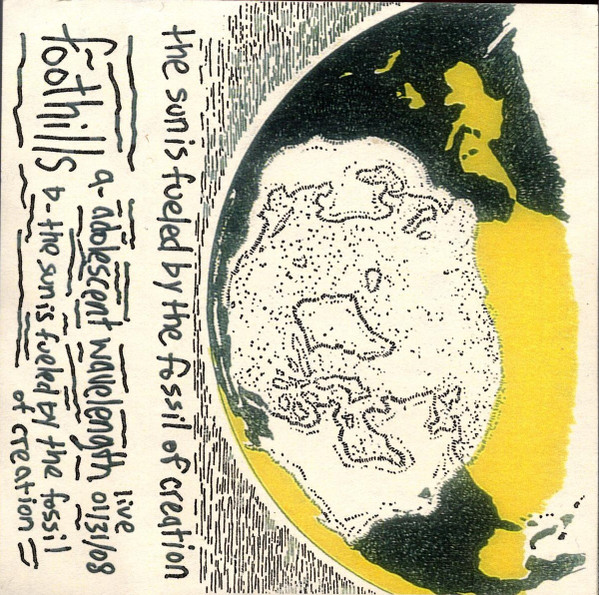 the sun is fueled by the fossil of creation
foothills
live
a- adolescent wavelength 01/31/08
b- the sun is fueled by the fossil
of creation